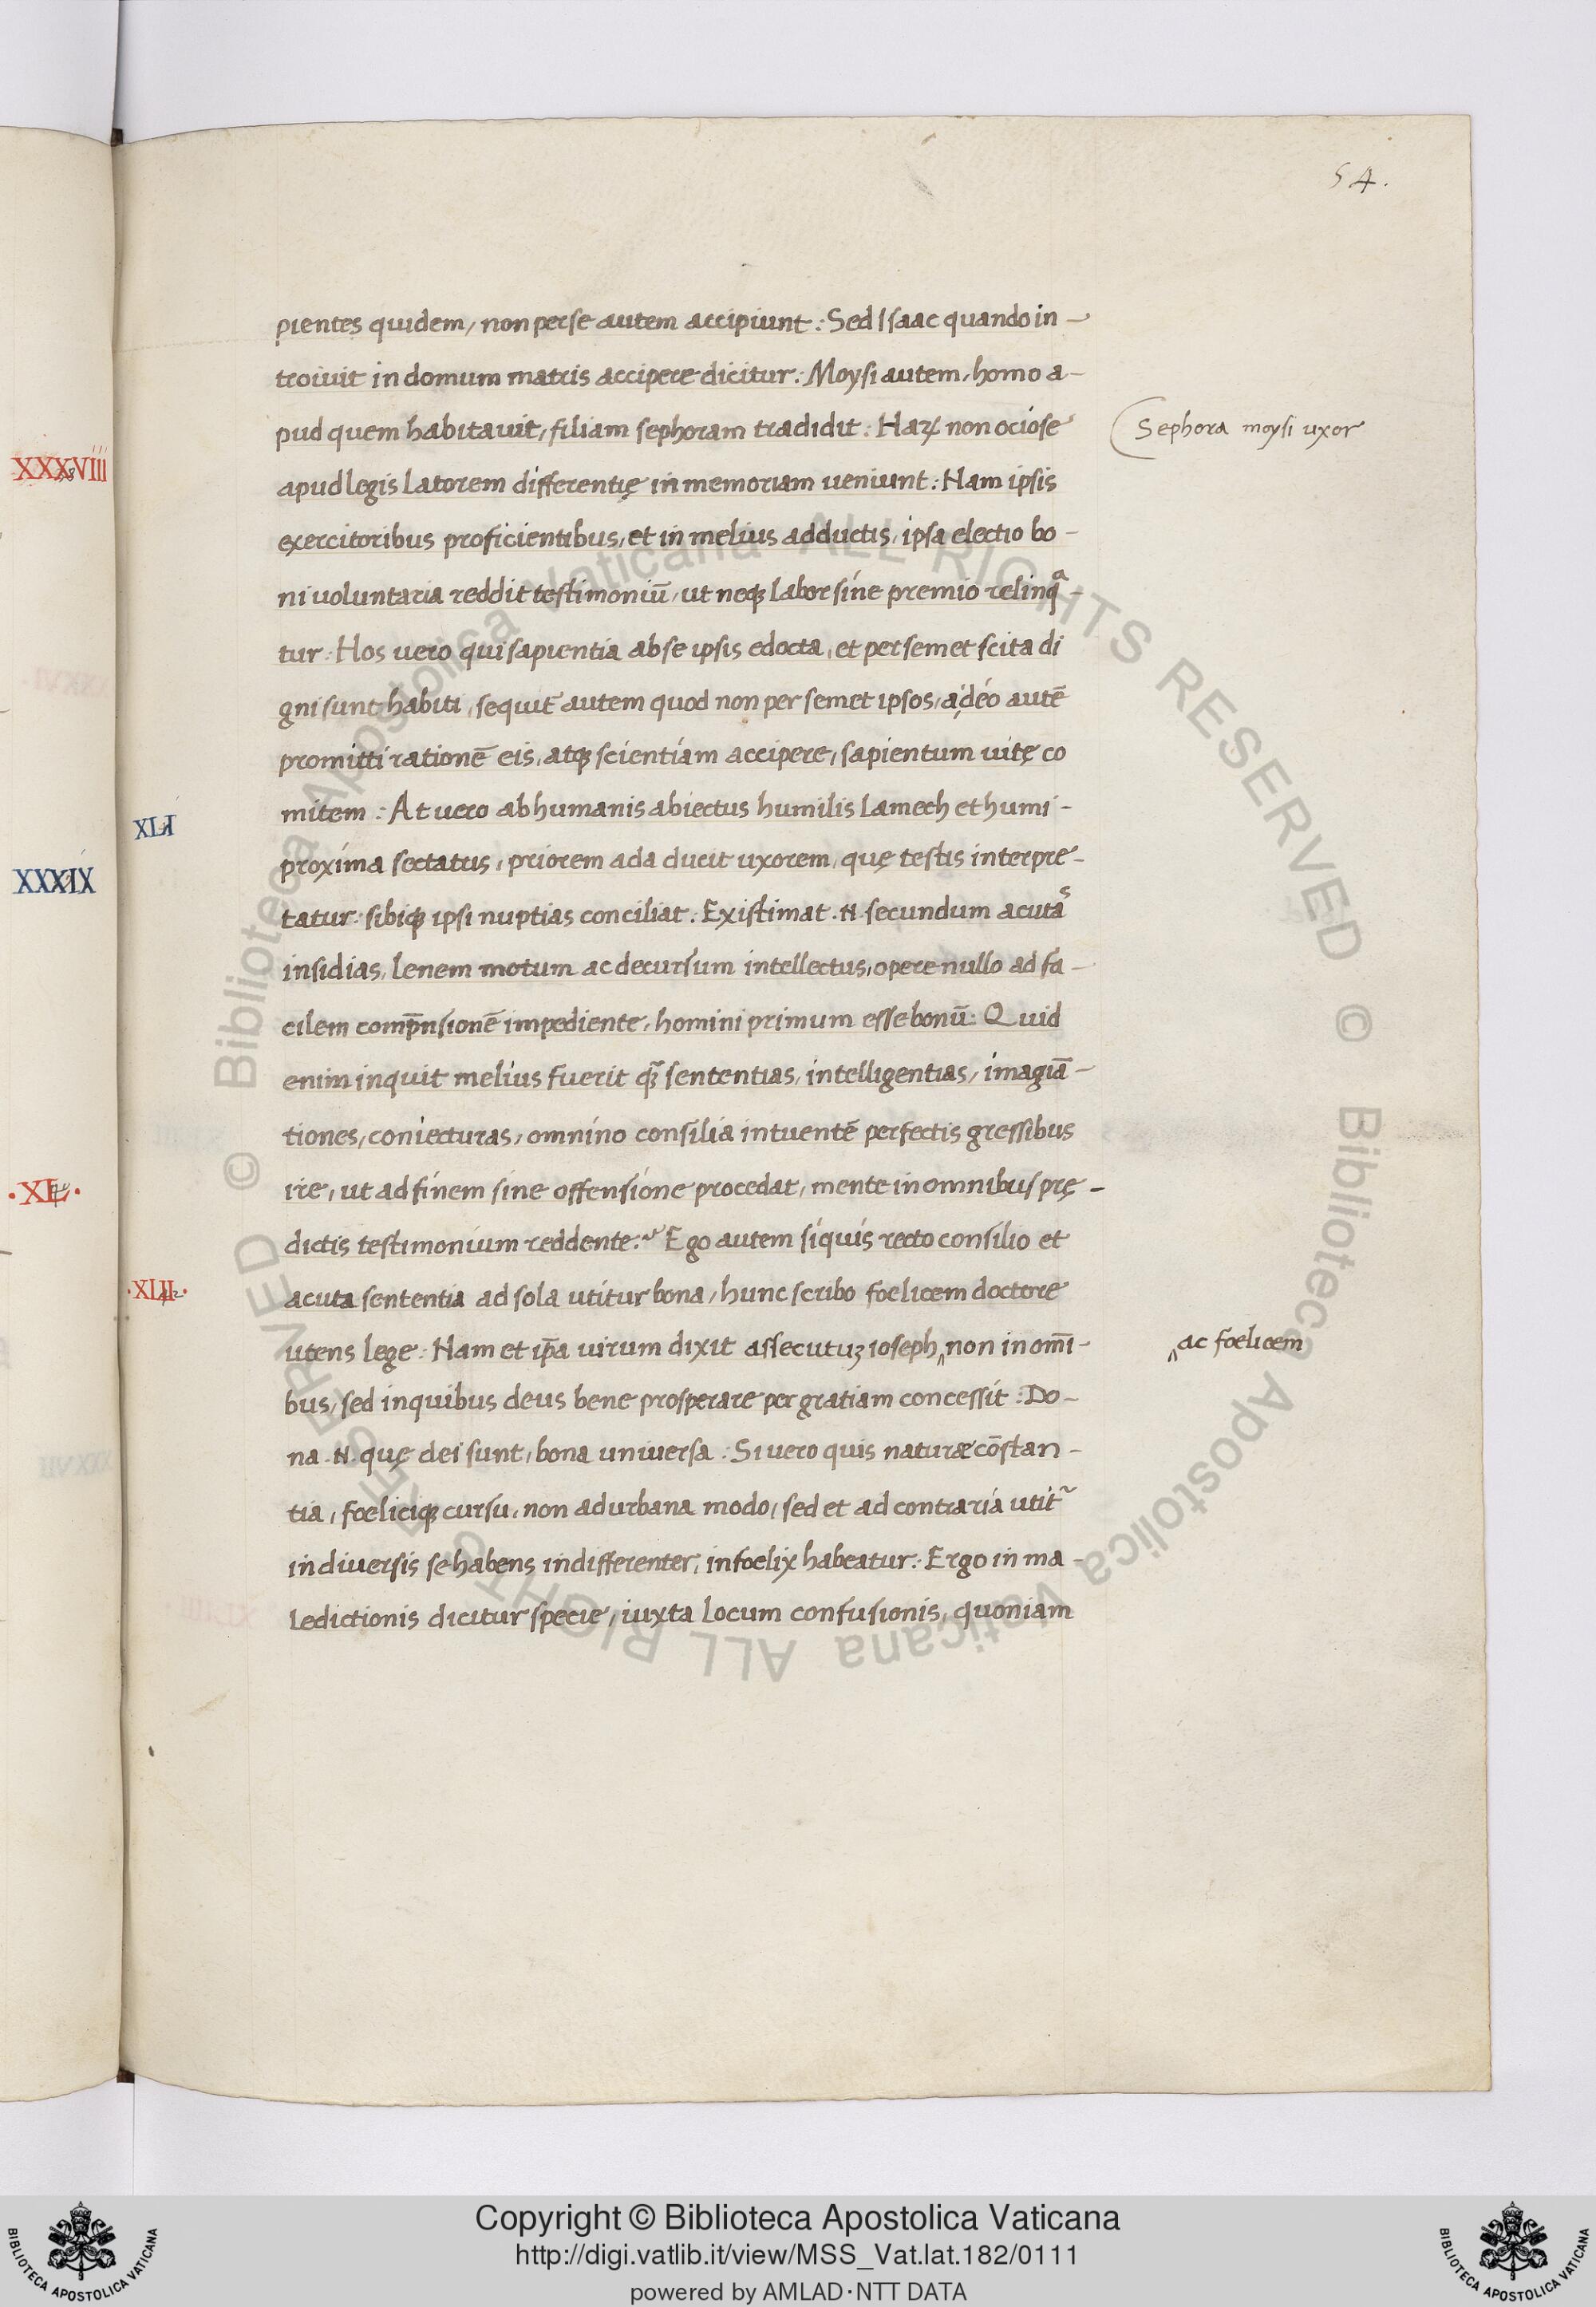 54.
pientes quidem, non per se autem accipiunt: Sed Isaac quando in-
troiuit in domum matris accipere dicitur: Moysi autem, homo a-
pud quem habitauit, filiam sephoram tradidit: Haꝝ non ociose
Sephora moysi uxor
XXXVIII
apud legis Latorem differentię in memoriam ueniunt: Nam ipsis
exercitoribus proficientibus, et in melius adductis, ipsa electio bo-
ni uoluntaria reddit testimoniū, ut neqꝫ labor sine premio relinqͣ-
tur: Hos uero qui sapientia ab se ipsis edocta, et per semet scita di
gni sunt habiti, sequit̄ autem quod non per semet ipsos, a deo autē
promitti rationē eis, atqꝫ scientiam accipere, sapientum uitę co
mitem: At uero ab humanis abiectus humilis Lamech et humi-
XLI
XXXIX
proxima sectatus, priorem ada ducit uxorem, quę testis interpre-
tatur: sibiqꝫ ipsi nuptias conciliat. Existimat .N. secundum acutas
insidias, lenem motum ac decursum intellectus, opere nullo ad fa-
cilem comp̄nsionē impediente, homini primum esse bonū: Quid
enim inquit melius fuerit qꝫ̄ sententias, intelligentias, imagiā-
tiones, coniecturas, omnino consilia intuentē perfectis gressibus
ire, ut ad finem sine offensione procedat, mente in omnibus prę-
XL
dictis testimonium reddente: Ego autem siquis recto consilio et
XLII
acuta sententia ad sola utitur bona, hunc scribo foelicem doctore
utens lege: Nam et ip̄a uirum dixit assecutuꝫ ioseph, non in om̄i-
ac foelicem
bus, sed in quibus deus bene prosperare per gratiam concessit: Do-
na .N. quę dei sunt, bona uniuersa: Si uero quis naturæ cōstan-
tia, foeliciqꝫ cursu, non ad urbana modo, sed et ad contraria utit᷑
in diuersis se habens indifferenter, infoelix habeatur: Ergo in ma-
ledictionis dicitur specie, iuxta locum confusionis, quoniam
© Biblioteca Apostolica Vaticana ALL RIGHTS RESERVED © Biblioteca Apostolica Vaticana ALL RIGHTS RESERVED
Copyright © Biblioteca Apostolica Vaticana
http://digi.vatlib.it/view/MSS_Vat.lat.182/0111
powered by AMLAD·NTT DATA
BIBLIOTECA APOSTOLICA VATICANA
BIBLIOTECA APOSTOLICA VATICANA